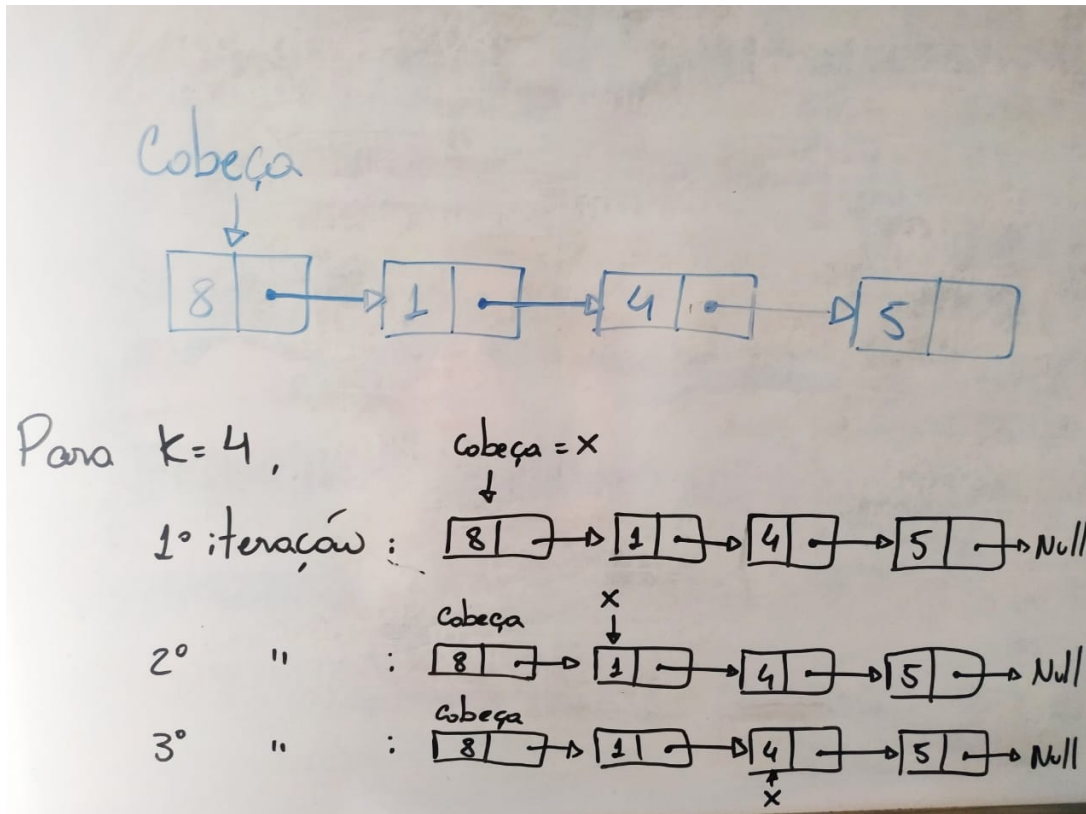 Cabeça
8 1 4 5
Para K=4,
Cabeça = X
1º iteração : 8 1 4 5 Null
Cabeça X
2º " : 8 1 4 5 Null
Cabeça
3º " : 8 1 4 5 Null
X